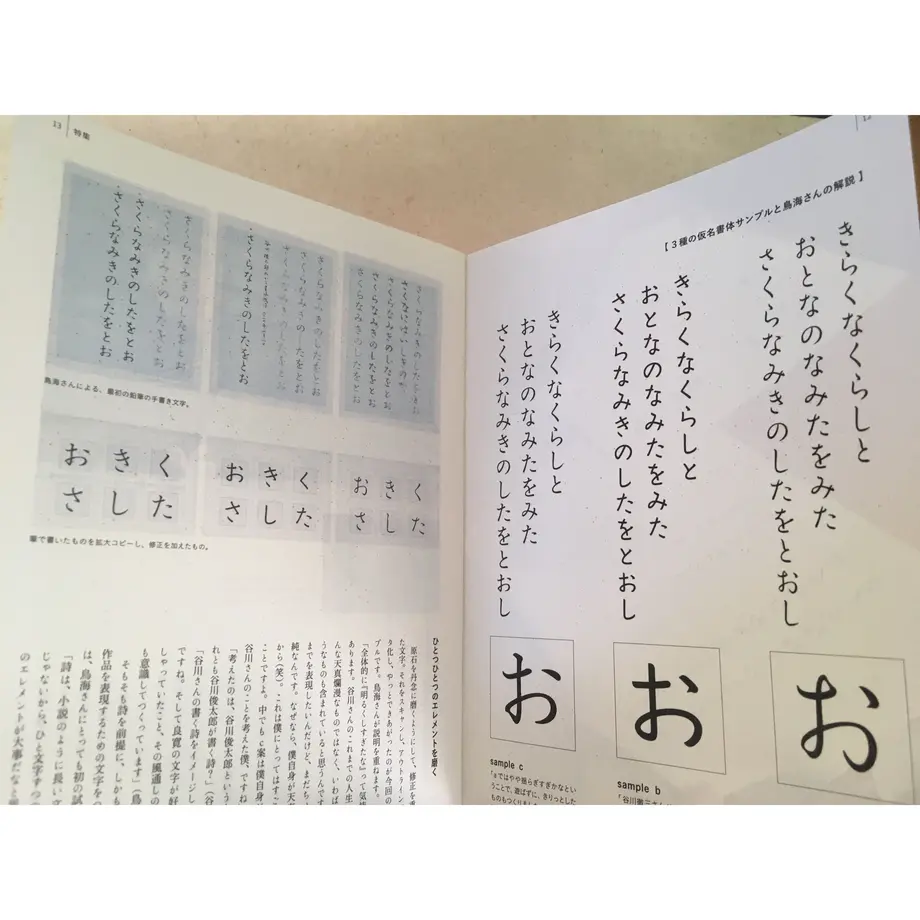 12
【３種の仮名書体サンプルと鳥海さんの解説】
きらくなくらしと
おとなのなみたをみた
さくらなみきのしたをとおし
きらくなくらしと
おとなのなみたをみた
さくらなみきのしたをとおし
きらくなくらしと
おとなのなみたをみた
さくらなみきのしたをとおし
お
お
お
sample b
sample c
「aではやや揺らぎすぎかなという
ことで、遊ばずに、きりっとした
13 特集
さくらなみきのしたをとお
さくらなみきのしたをとお
さくらなみきのしたをとお
さくらなみきのしたをとお
さくらなみきのしたをとお
さくらなみきのしたをとお
鳥海さんによる、最初の鉛筆の手書き文字。
おきく
さした
おきく
さした
おきく
さした
筆で書いたものを拡大コピーし、修正を加えたもの。
ひとつひとつのエレメントを磨く
原石を丹念に磨くようにして、修正を重
た文字。それをスキャンし、アウトライン
タ化し、やっとできあがったのが今回の
プルです。鳥海さんが説明を重ねます。
「全体的に『明るくしすぎたな』って気
あります。谷川さんのこれまでの人生
んな天真爛漫なものではなく、いわば
うなものも含まれていると思うんです
までを表現したいんだけど、まだち
純なんです。なぜなら、僕自身が天
から（笑）。これは僕にとってはすご
ことですよ。中でもc案は僕自身
谷川さんのことを考えた僕、ですね
「考えたのは、谷川俊太郎という
れとも谷川俊太郎が書く詩？」（谷
「谷川さんの書く詩をイメージし
ですね。そして良寛の文字が好
しゃっていたこと、その風通しの
も意識してつくっています」（鳥
そもそも詩を前提に、しかも
作品を表現するための文字をつ
は、鳥海さんにとっても初の試
「詩は、小説のように長い文
じゃないから、ひと文字ずつ
のエレメントが大事だなと